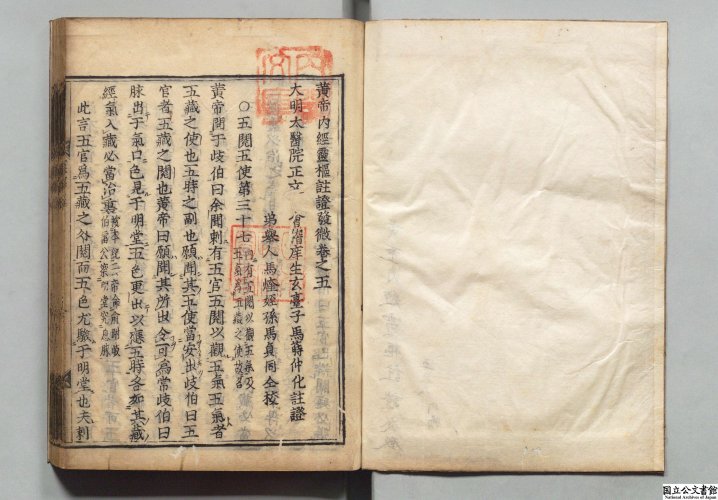 黃帝內經靈樞註證發微卷之五
大明太醫院正文 會稽庠生玄臺子馬蒔仲化註證
弟舉人馬 經孫馬貞同全校
○五閱五使第三十七 內有五閱以觀五氣及
五氣為五藏之使故名
黃帝問于岐伯曰余聞刺有五官五閱以觀五氣五氣者
五藏之使也五時之副也願聞其五使當安出岐伯曰五
官者五藏之閱也黃帝曰願聞其所出令可為常岐伯曰
脉出于氣口色見于明堂五色更出以應五時各如其藏
經氣入藏必當治裏
此言五官為五藏之外閱而五色尤驗于明堂也夫刺
国立公文書館
National Archives of Japan